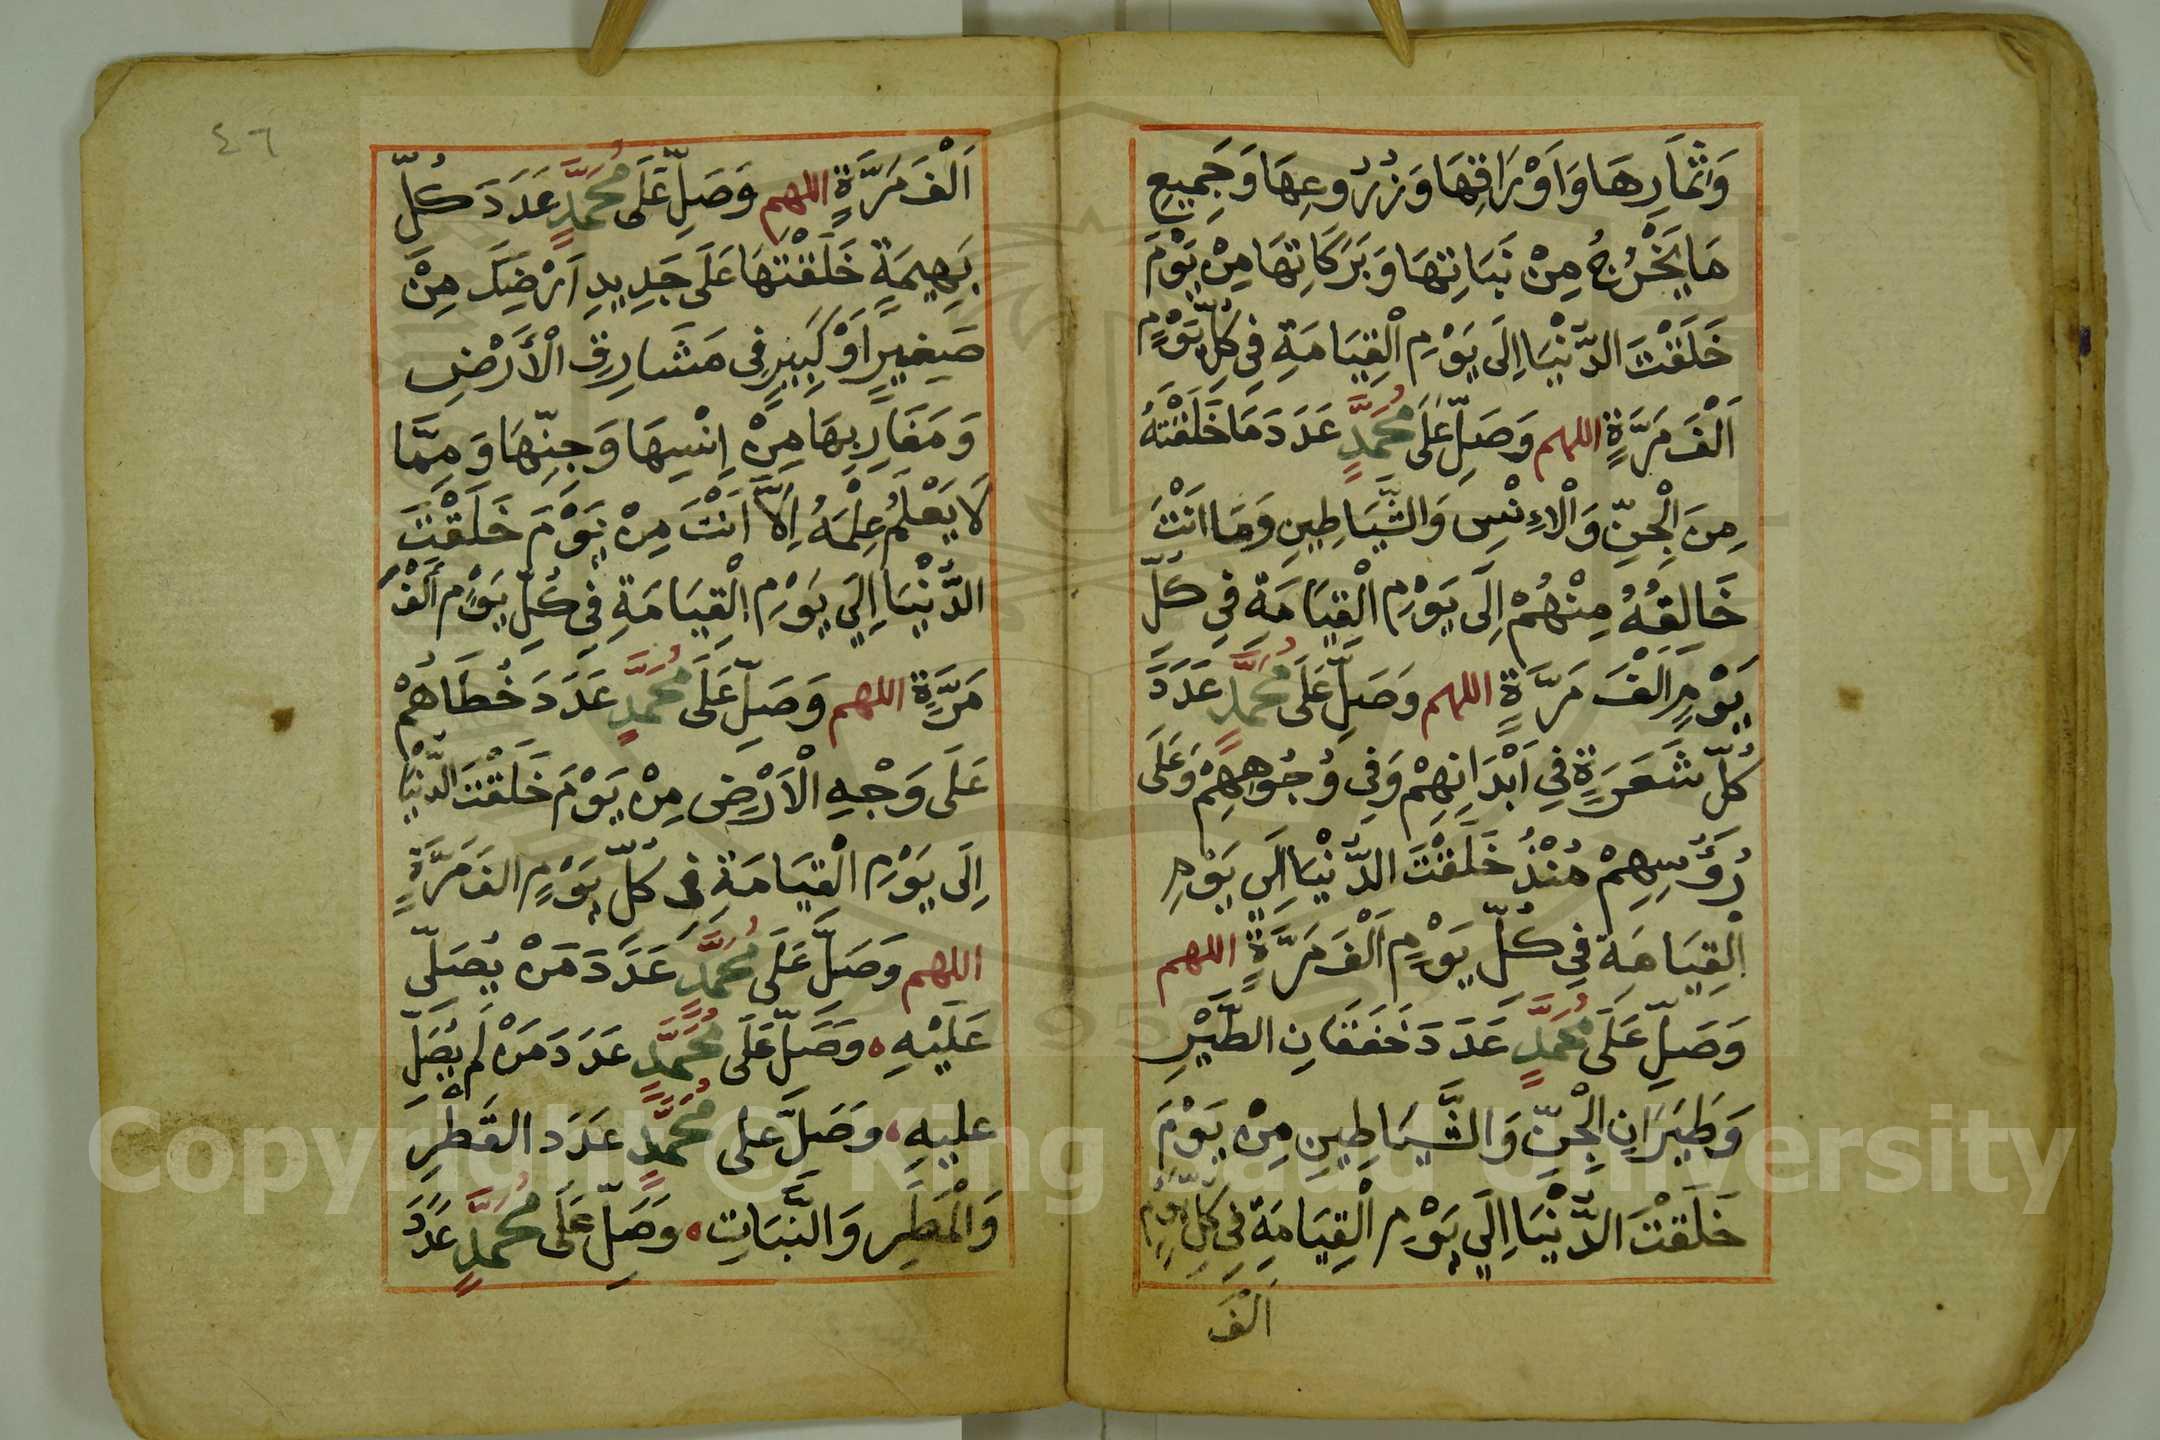 وَاَثْمَارِهَا وَاَوْرَاقِهَا وَزُرُوعِهَا وَجَمِيعِ
مَا يَخْرُجُ مِنْ نَبَاتِهَا وَبَرَكَاتِهَا مِنْ يَوْمَ
خَلَقْتَ الدُّنْيَا اِلَى يَوْمِ الْقِيَامَةِ فِى كُلِّ يَوْمٍ
اَلْفَ مَرَّةٍ اللهم وَصَلِّ عَلَى مُحَمَّدٍ عَدَدَ مَا خَلَقْتَهُ
مِنَ الْجِنِّ وَالْاِنْسِ وَالشَّيَاطِينِ وَمَا اَنْتَ
خَالِقُهُ مِنْهُمْ اِلَى يَوْمِ الْقِيَامَةِ فِي كُلِّ
يَوْمٍ اَلْفَ مَرَّةٍ اللهم وَصَلِّ عَلَى مُحَمَّدٍ عَدَدَ
كُلِّ شَعَرَةٍ فِي اَبْدَانِهِمْ وَفِي وُجُوهِهِمْ وَعَلَى
رُؤُسِهِمْ مُنْذُ خَلَقْتَ الدُّنْيَا اِلَى يَوْمِ
الْقِيَامَةِ فِي كُلِّ يَوْمٍ اَلْفَ مَرَّةٍ اللهم
وَصَلِّ عَلَى مُحَمَّدٍ عَدَدَ خَفَقَانِ الطَّيْرِ
وَطَيَرَانِ الْجِنِّ وَالشَّيَاطِينِ مِنْ يَوْمَ
خَلَقْتَ الدُّنْيَا اِلَي يَوْمِ الْقِيَامَةِ فِي كُلِّ يَوْمٍ
اَلْفَ
٤٦
اَلْفَ مَرَّةٍ اللهم وَصَلِّ عَلَى مُحَمَّدٍ عَدَدَ كُلِّ
بَهِيمَةٍ خَلَقْتَهَا عَلَى جَدِيدِ اَرْضِكَ مِنْ
صَغِيرٍ اَوْ كَبِيرٍ فِى مَشَارِقِ الْأَرْضِ
وَمَغَارِبِهَا مِنْ اِنْسِهَا وَجِنِّهَا وَمِمَّا
لَا يَعْلَمُ عِلْمَهُ اِلَّا اَنْتَ مِنْ يَوْمَ خَلَقْتَ
الدُّنْيَا اِلَي يَوْمِ الْقِيَامَةِ فِي كُلِّ يَوْمٍ اَلْفَ
مَرَّةٍ اللهم وَصَلِّ عَلَى مُحَمَّدٍ عَدَدَ خُطَاهُمْ
عَلَى وَجْهِ الْاَرْضِ مِنْ يَوْمَ خَلَقْتَ الدُّنْيَا
اِلَى يَوْمِ الْقِيَامَةِ فِى كُلِّ يَوْمٍ الفَ مَرَّةٍ
اللهم وَصَلِّ عَلَى مُحَمَّدٍ عَدَدَ مَنْ يُصَلِّى
عَلَيْهِ وَصَلِّ عَلَى مُحَمَّدٍ عَدَدَ مَنْ لَمْ يُصَلِّ
عليهِ وَصَلِّ على مُحَمَّدٍ عَدَدَ القَطْرِ
وَالْمَطَرِ وَالنَّبَاتِ وَصَلِّ عَلَى مُحَمَّدٍ عَدَدَ
Copyright © King Saud University